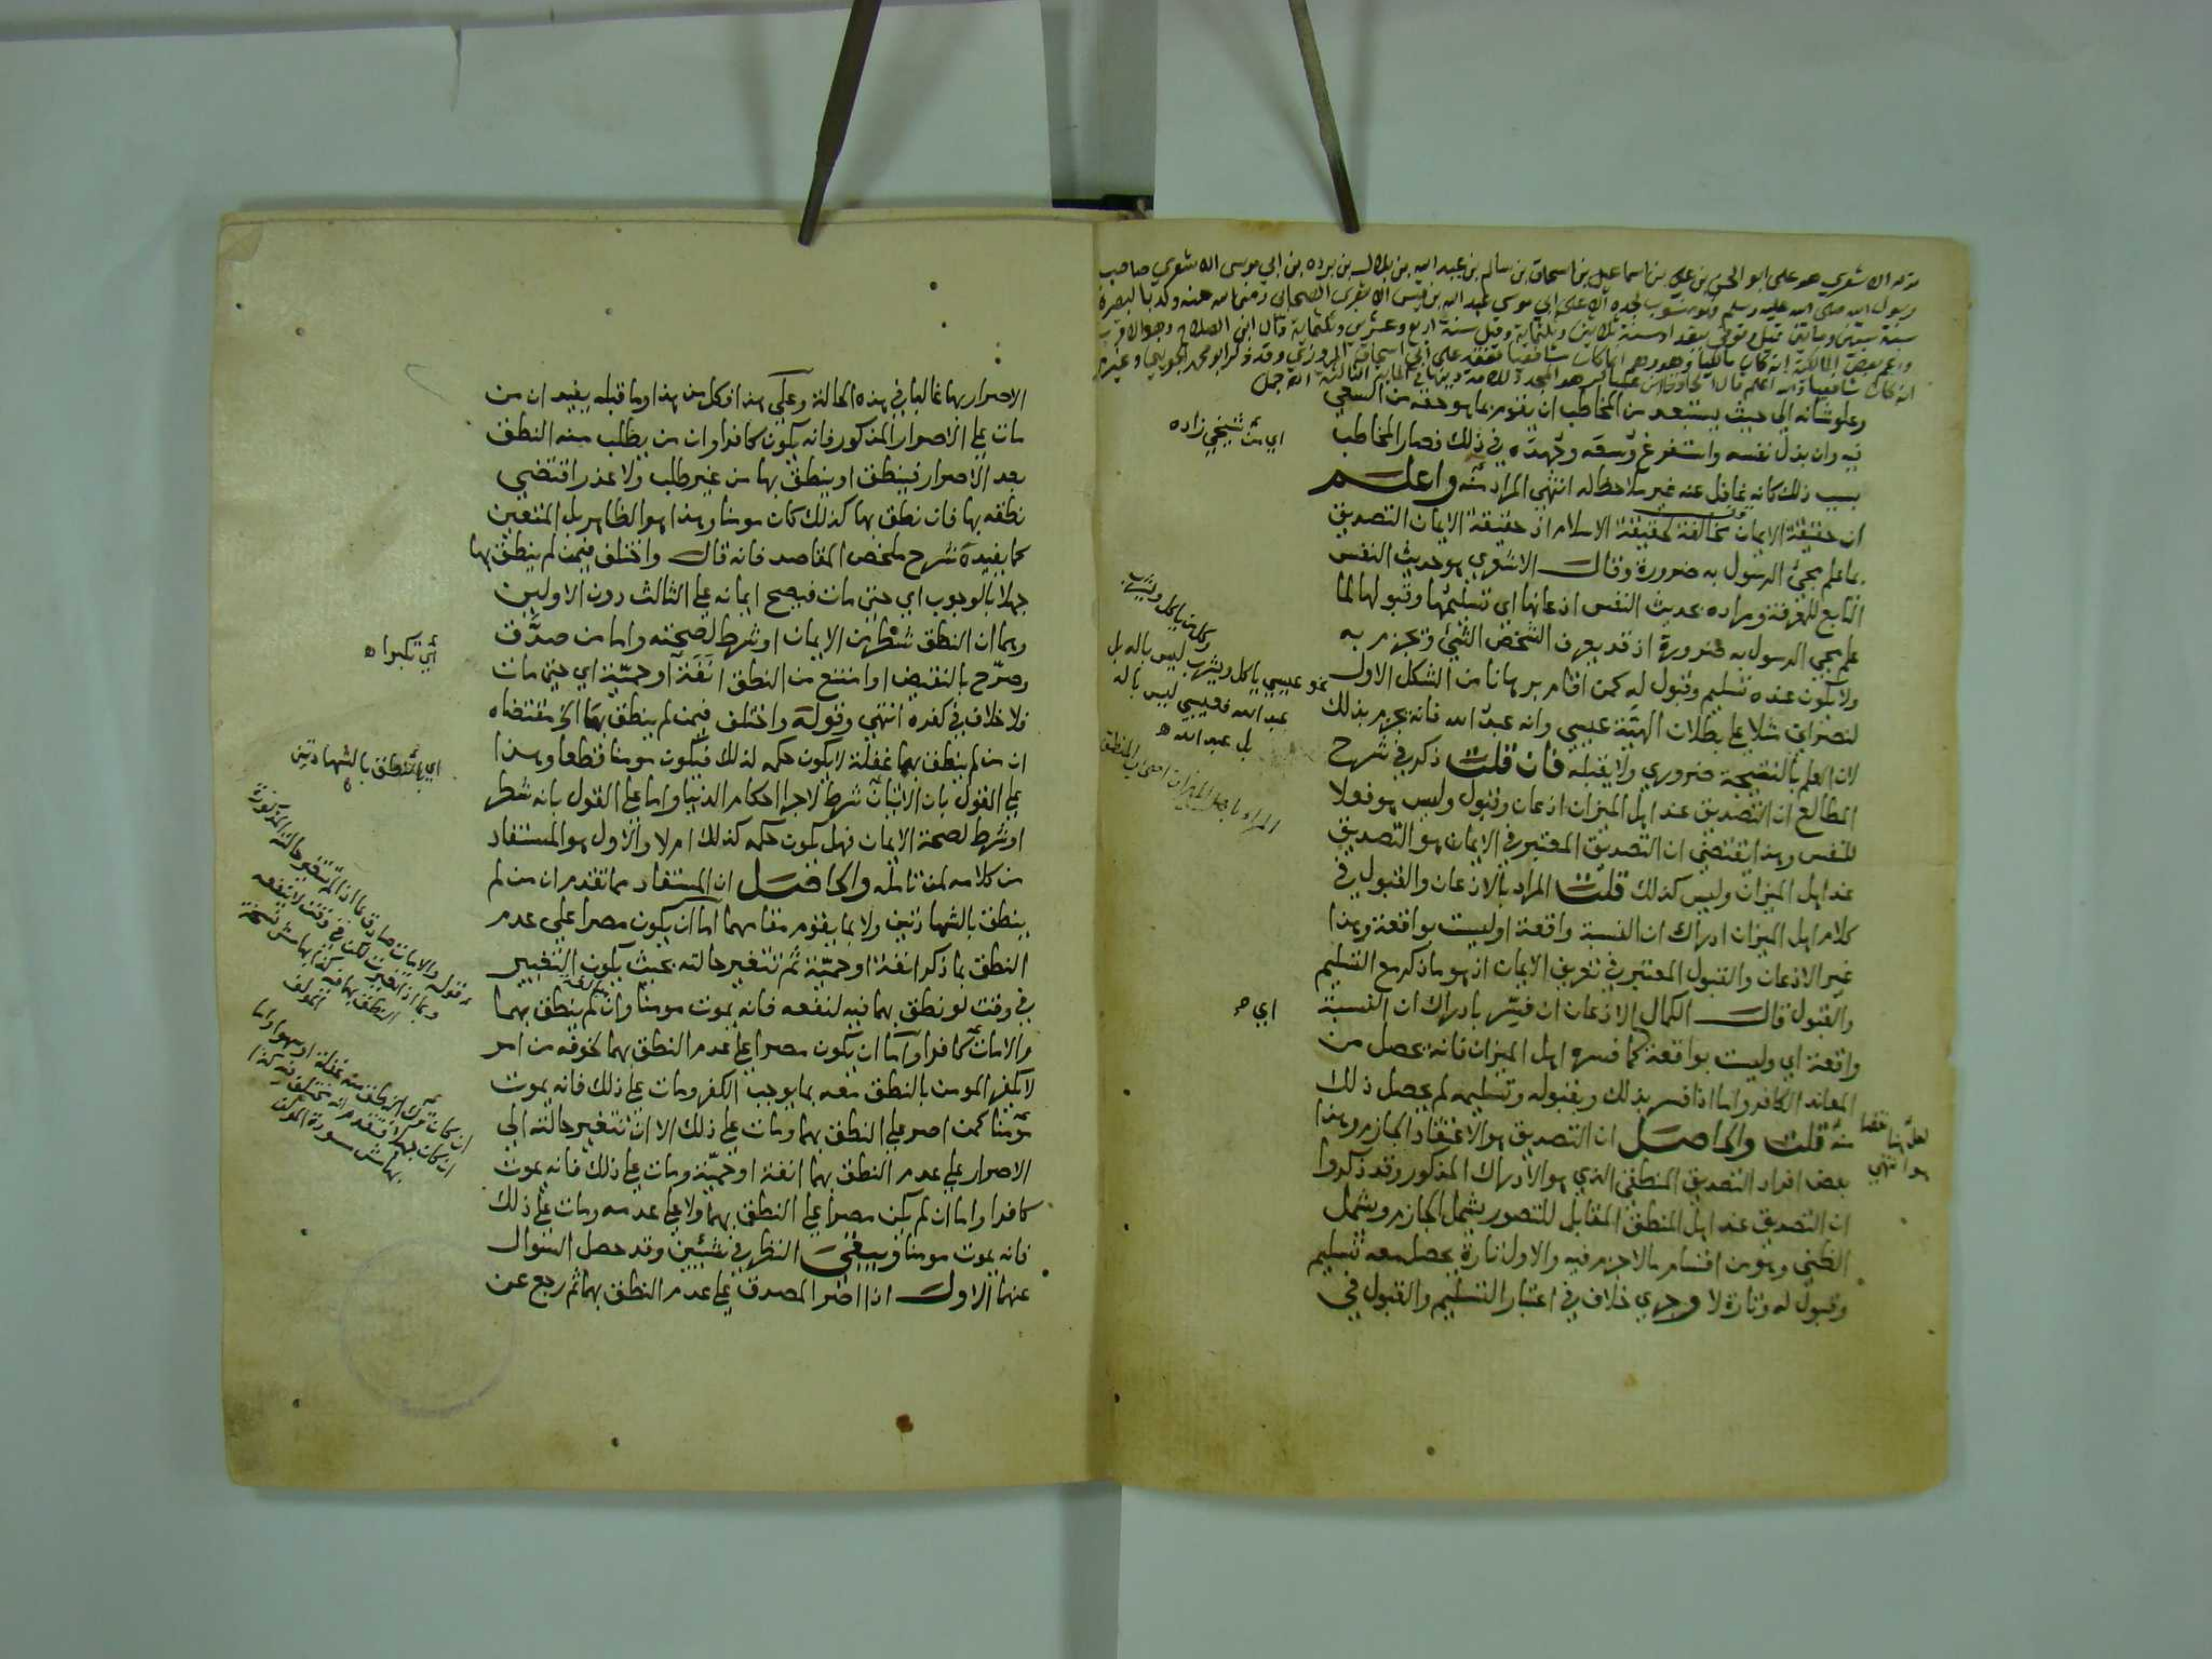 قوله الاشعري هو علي ابو الحسن بن علي بن اسماعيل بن اسحاق بن سالم بن عبد الله بن بلال بن برده بن ابي موسى الاشعري صاحب
رسول الله صلى الله عليه وسلم منسوب لجده الاعلى ابي موسى عبد الله بن قيس الاشعري الصحابي رضي الله عنه ولد بالبصرة
سنة ستين ومايتين وتوفي ببغداد سنة ثلاثين وثلثماية وقيل سنة اربع وعشرين وثلثماية قال ابن الصلاح وهو الاقرب
وزعم بعض المالكية انه كان مالكيا وهو وهم انما كان شافعيا تفقه على ابي اسحاق المروزي وقد ذكر ابو محمد الجويني وغيره
انه كان شافعيا والله اعلم
وعلو شانه الي حيث يستبعد من المخاطب ان يقوم بما هو حقه من السعي
فيه وان بذل نفسه واستفرغ وسعه وجهده في ذلك فصار المخاطب
بسبب ذلك كانه غافل عنه غير ملاحظ له انتهي المراد منه واعلم
ان حقيقة الايمان مخالفة لحقيقة الاسلام اذ حقيقة الايمان التصديق
بما علم مجئ الرسول به ضرورة وقال الاشعري هو حديث النفس
التابع للمعرفة ومراده بحديث النفس اذعانها اي تسليمها وقبولها لما
علم مجي الرسول به ضرورة اذ قد يعرف الشخص الشئ ويجزم به
ولا يكون عنده تسليم وقبول له كمن اقام برهانا من الشكل الاول
لنصراني مثلا على بطلان الهية عيسي وانه عبد الله فانه يجزم بذلك
لان العلم بالنتيجة ضروري ولا يقبله فان قلت ذكر في شرح
المطالع ان التصديق عند اهل الميزان اذعان وقبول وليس هو فعلا
للنفس وهذا يقتضي ان التصديق المعتبر في الايمان هو التصديق
عند اهل الميزان وليس كذلك قلت المراد بالاذعان والقبول في
كلام اهل الميزان ادراك ان النسبة واقعة او ليست بواقعة وهذا
غير الاذعان والقبول المعتبر في تعريف الايمان اذ هو ما ذكر مع التسليم
والقبول قال الكمال الاذعان ان فسر بادراك ان النسبة
واقعة اي وليست بواقعة كما فسره اهل الميزان فانه يحصل من
المعاند الكافر واما اذا فسر بذلك وبقبوله وتسليمه لم يحصل ذلك
منه قلت والحاصل ان التصديق هو الاعتقاد الجازم وهذا
بعض افراد التصديق المنطقي الذي هو الادراك المذكور وقد ذكروا
ان التصديق عند اهل المنطق المقابل للتصور يشمل الجازم ويشمل
الظني وهو من اقسام مالا جزم فيه والاول تارة يحصل معه تسليم
وقبول له وتارة لا وجري خلاف في اعتبار التسليم والقبول في
اي متن شيخي زاده
وكل من ياكل ويشرب
نحو عيسي ياكل ويشرب ليس باله بل
عبد الله فعيسي ليس باله
بل عبد الله ه
المراد باهل الميزان اصحاب المنطق
اي م
الاصرار بها غالبا في هذه الحالة وعلي هذا فكل من هذا وما قبله يفيد ان من
مات علي الاصرار المذكور فانه يكون كافرا وان من يطلب منه النطق
بعد الاصرار فينطق او ينطق بها من غير طلب ولا عذر اقتضي
نطقه بها فان نطق بها كذلك كان مومنا وهذا هو الظاهر بل المتعين
كما يفيده شرح ملخص المقاصد فانه قال واختلف فيمن لم ينطق بها
جهلا بالوجوب اي حتي مات فيصح ايمانه علي الثالث دون الاولين
وهما ان النطق شطر من الايمان او شرط لصحته واما من صدق
وصرح بالنقيض او امتنع من النطق انفة او حمية اي حتي مات
فلا خلاف في كفره انتهي وقوله واختلف فيمن لم ينطق بها الخ مقتضاه
ان من لم ينطق بهما غفلة لا يكون حكمه لذلك فيكون مومنا قطعا وهذا
علي القول بان الاتيان شرط لاجرا احكام الدنيا واما علي القول بانه شطر
او شرط لصحة الايمان فهل يكون حكمه كذلك ام لا والاول هو المستفاد
من كلامه لمن تامله والحاصل ان المستفاد مما تقدم ان من لم
ينطق بالشهادتين ولا بما يقوم مقامهما اما ان يكون مصرا علي عدم
النطق بما ذكر انفة او حمية ثم تتغير حالته بحيث يكون التغيير
في وقت لو نطق بهما فيه لنفعه فانه يموت مومنا وان لم ينطق بهما
والامات كافرا واما ان يكون مصرا علي عدم النطق بهما لخوفه من امر
لا يكفر المومن بالنطق معه بما يوجب الكفر ومات علي ذلك فانه يموت
مومنا كمن اصر علي النطق بهما ومات علي ذلك الا ان تتغير حالته الي
الاصرار علي عدم النطق بهما انفة او حمية ومات علي ذلك فانه يموت
كافرا واما ان لم يكن مصرا علي النطق بهما ولا علي عدمه ومات علي ذلك
فانه يموت مومنا ويبقي النظر في شيئين وقد حصل السوال
عنهما الاول اذا اصر المصدق علي عدم النطق بهما ثم رجع عن
اي تكبرا ه
اي النطق بالشهادتين
قوله والامات صادق بما اذا لم تتغير حالته المذكورة
وبما اذا تغيرت لكن في وقت لا ينفعه
النطق بهما فيه كذا بهامش نسخة
المولف
ان كان ترك النطق منه غفلة او سهوا واما
ان كان جهلا فتقدم انه مختلف فيه كذا
بهامش مسودة المولف